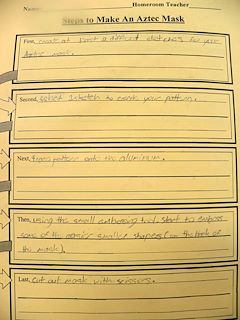 Name
Homeroom Teacher
Steps to Make An Aztec Mask
First, create at least 2 different sketches for your
Aztec mask.
Second, select 1 sketch to create your pattern.
Next, trace pattern onto the aluminum.
Then, using the small embossing tool, start to emboss
some of the easier smaller shapes (on the back of
the mask).
Last, cut out mask with scissors.